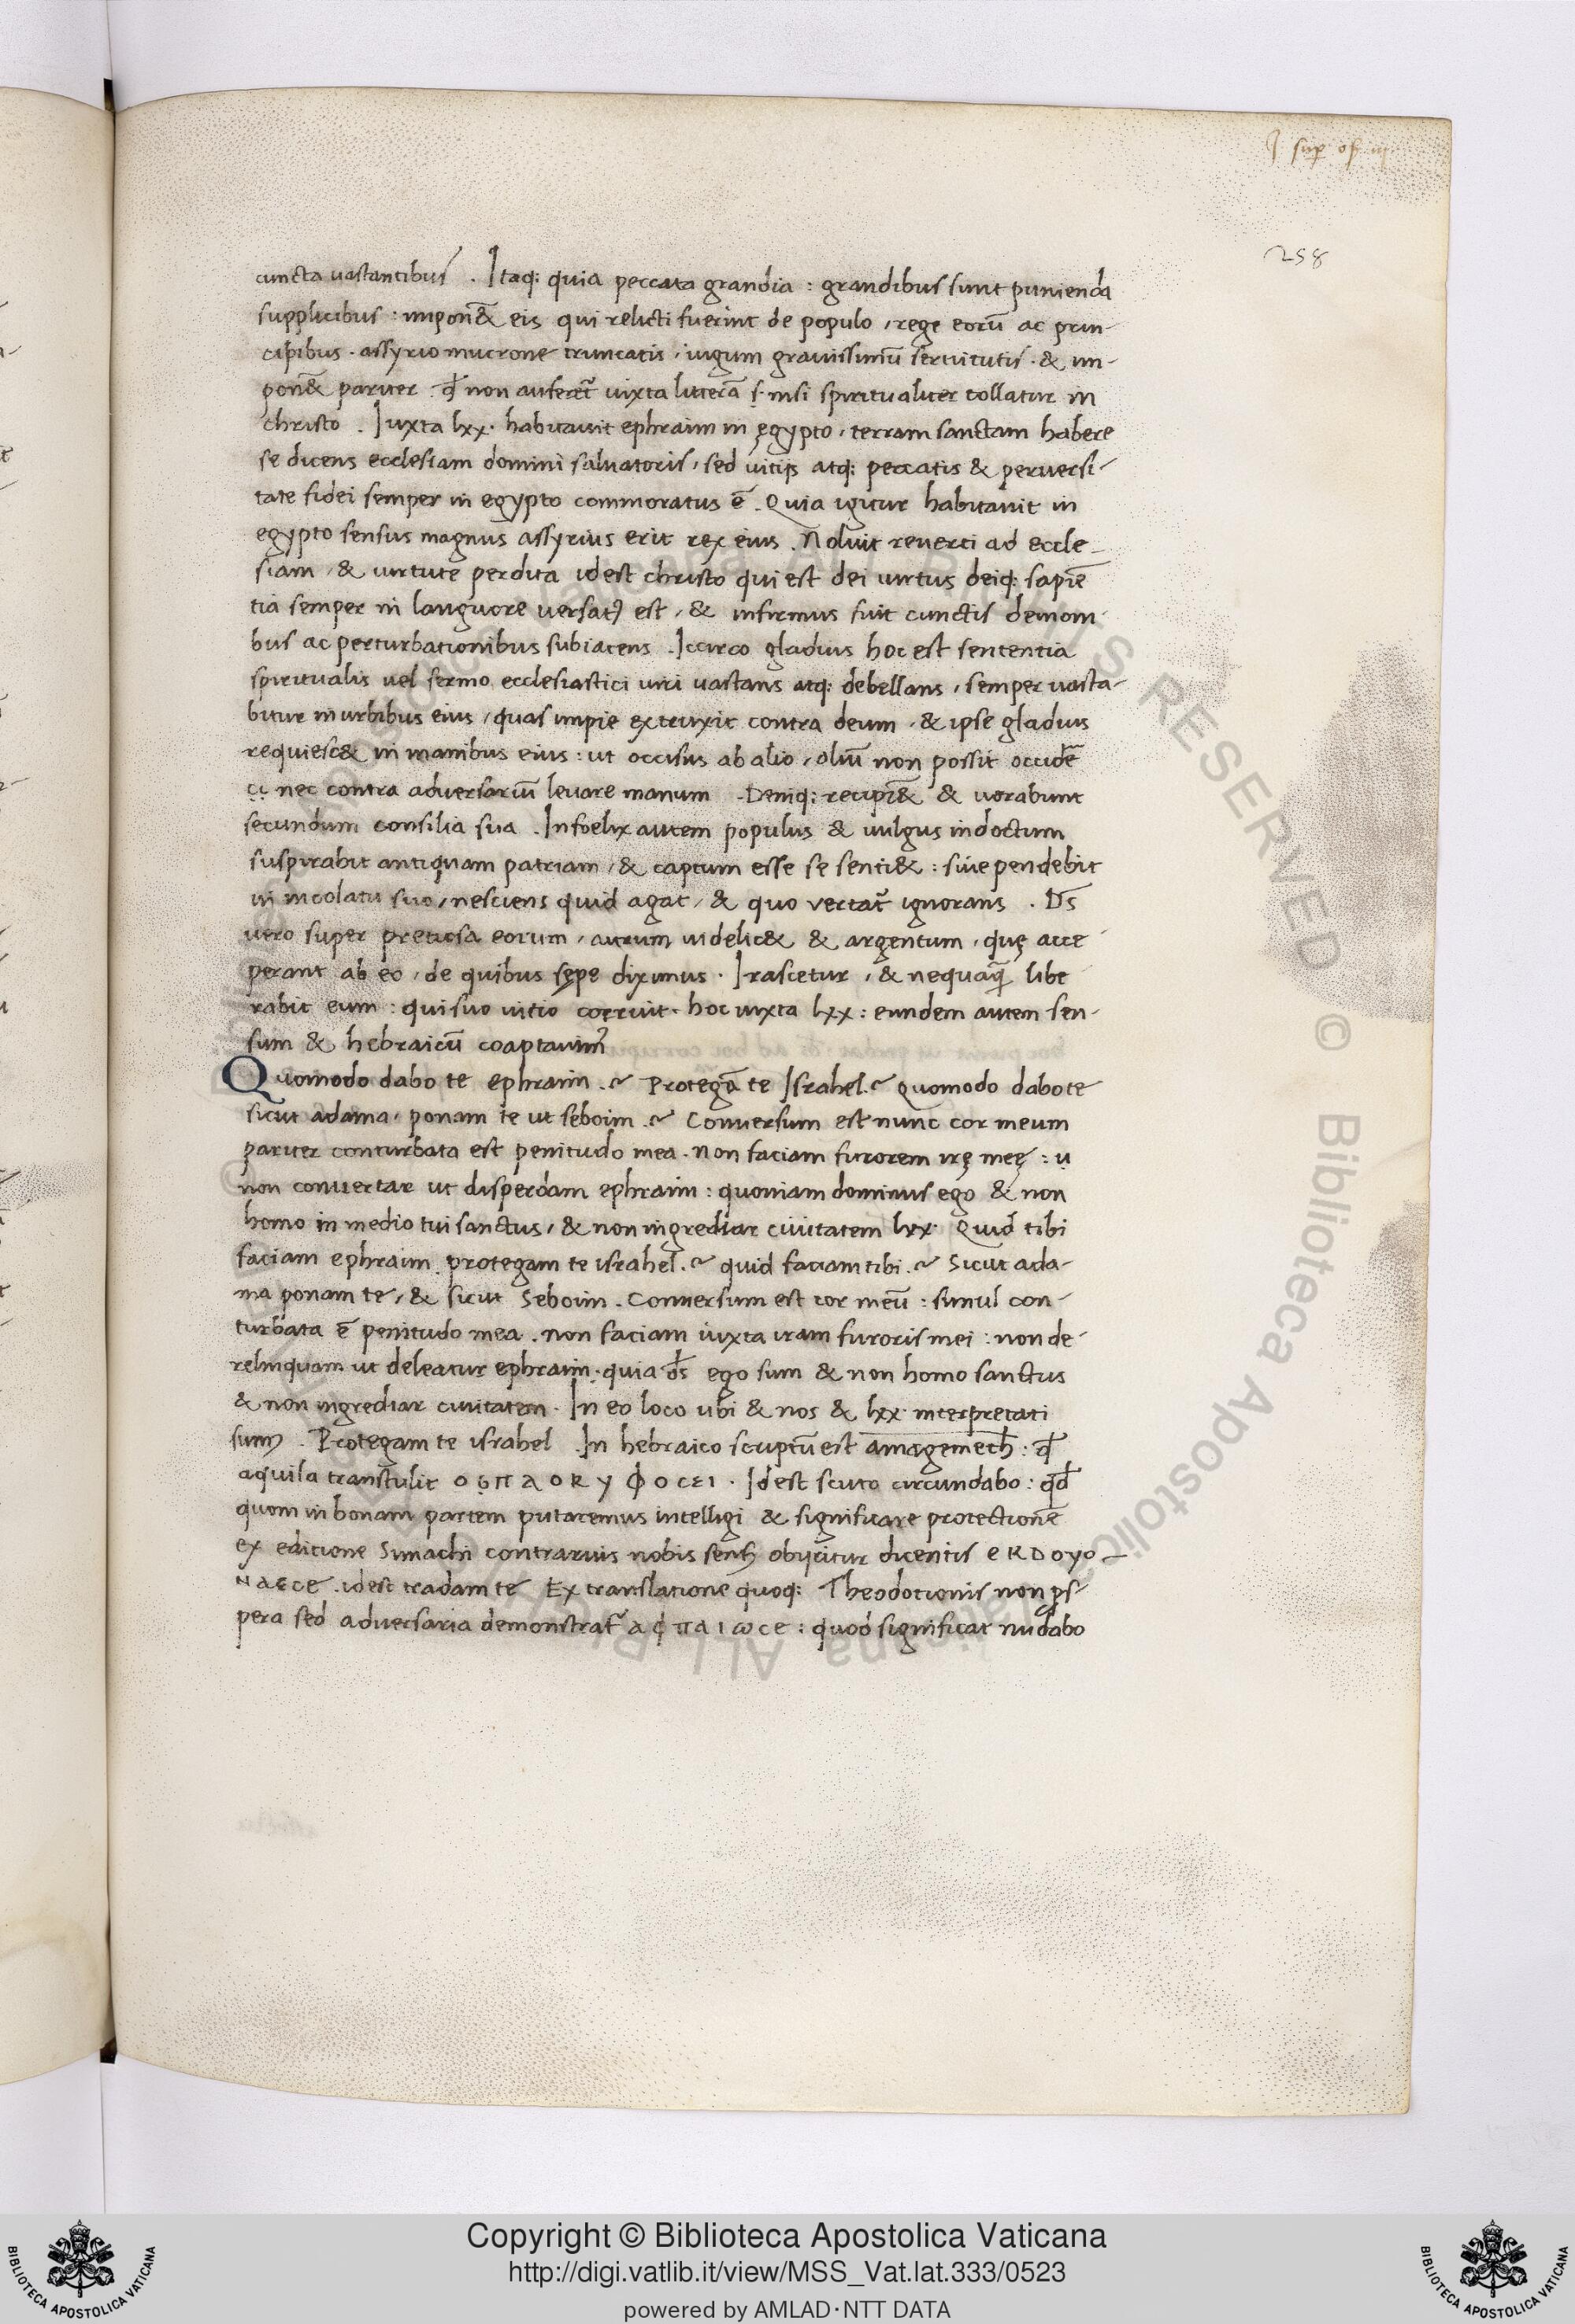 J sup os. iij.
258
cuncta uastantibus . Itaq; quia peccata grandia : grandibus sunt punienda
supplicibus : impon&̄ eis qui relicti fuerint de populo , rege eorū ac prin-
cipibus . assyrio mucrone truncatis , iugum grauissimū seruitutis . & im-
pon&̄ pariter . qd̄ non auferet̄ iuxta litterā s; nisi spiritualiter tollatur in
christo . Iuxta lxx . habitauit ephraim in ęgypto , terram sanctam habere
se dicens ecclesiam domini saluatoris , sed uitijs atq; peccatis & peruersi-
tate fidei semper in egypto commoratus ē . Quia igitur habitauit in
egypto sensus magnus assyrius erit rex eius . Noluit reuerti ad eccle-
siam , & uirtute perdita idest christo qui est dei uirtus deiq; sapiē
tia semper in languore versatꝰ est , & infirmus fuit cunctis demoni-
bus ac perturbationibus subiacens . Iccirco gladius hoc est sententia
spiritualis uel sermo ecclesiastici uiri uastans atq; debellans , semper uasta-
bitur in urbibus eius , quas impie extruxit contra deum , & ipse gladius
requiesc& in manibus eius : ut occisus ab alio , oliū non possit occidē
ci nec contra aduersariū leuare manum . Deniq; recipi&̄ & uorabunt
secundum consilia sua . Infoelix autem populus & uulgus indoctum
suspirabit antiquam patriam , & captum esse se senti& : siue pendebit
in incolatu suo , nesciens quid agat , & quo vertat̄ ignorans . Ds̄
uero super pretiosa eorum , aurum uidelic& & argentum , quę acce-
perant ab eo , de quibus sępe diximus . Irascetur , & nequaq̄ libe
rabit eum : qui suo uitio corruit . hoc iuxta lxx : eundem autem sen-
sum & hebraicū coaptauimꝰ
Quomodo dabo te ephraim . ~ Protegā te Israhel . ~ Quomodo dabo te
sicut adama , ponam te ut seboim . ~ Conuersum est nunc cor meum
pariter conturbata est penitudo mea . Non faciam furorem irę meę : u
non conuertar ut disperdam ephraim : quoniam dominus ego & non
homo in medio tui sanctus , & non ingrediar ciuitatem lxx . Quid tibi
faciam ephraim . protegam te israhel . ~ quid faciam tibi . ~ Sicut ada-
ma ponam te , & sicut Seboim . Conuersum est cor meū : simul con-
turbata ē penitudo mea . non faciam iuxta iram furoris mei : non de-
relinquam ut deleatur ephraim : quia ds̄ ego sum & non homo sanctus
& non ingrediar ciuitatem . In eo loco ubi & nos & lxx . interpretati
sumꝰ . Protegam te israhel . In hebraico scriptū est amagenech : qd̄
aquila transtulit οϭπαοκυφοσει . Idest scuto circundabo : qd̄
quom in bonam partem putaremus intelligi & significare protectionē
ex editione Simachi contrarius nobis sensꝰ obijcitur dicentis εκδογο-
ναεσε . idest tradam te Ex translatione quoq; Theodotionis non ꝓs-
pera sed aduersaria demonstrat̄ αφπαιωσε : quod significat nudabo
Copyright © Biblioteca Apostolica Vaticana
http://digi.vatlib.it/view/MSS_Vat.lat.333/0523
powered by AMLAD·NTT DATA